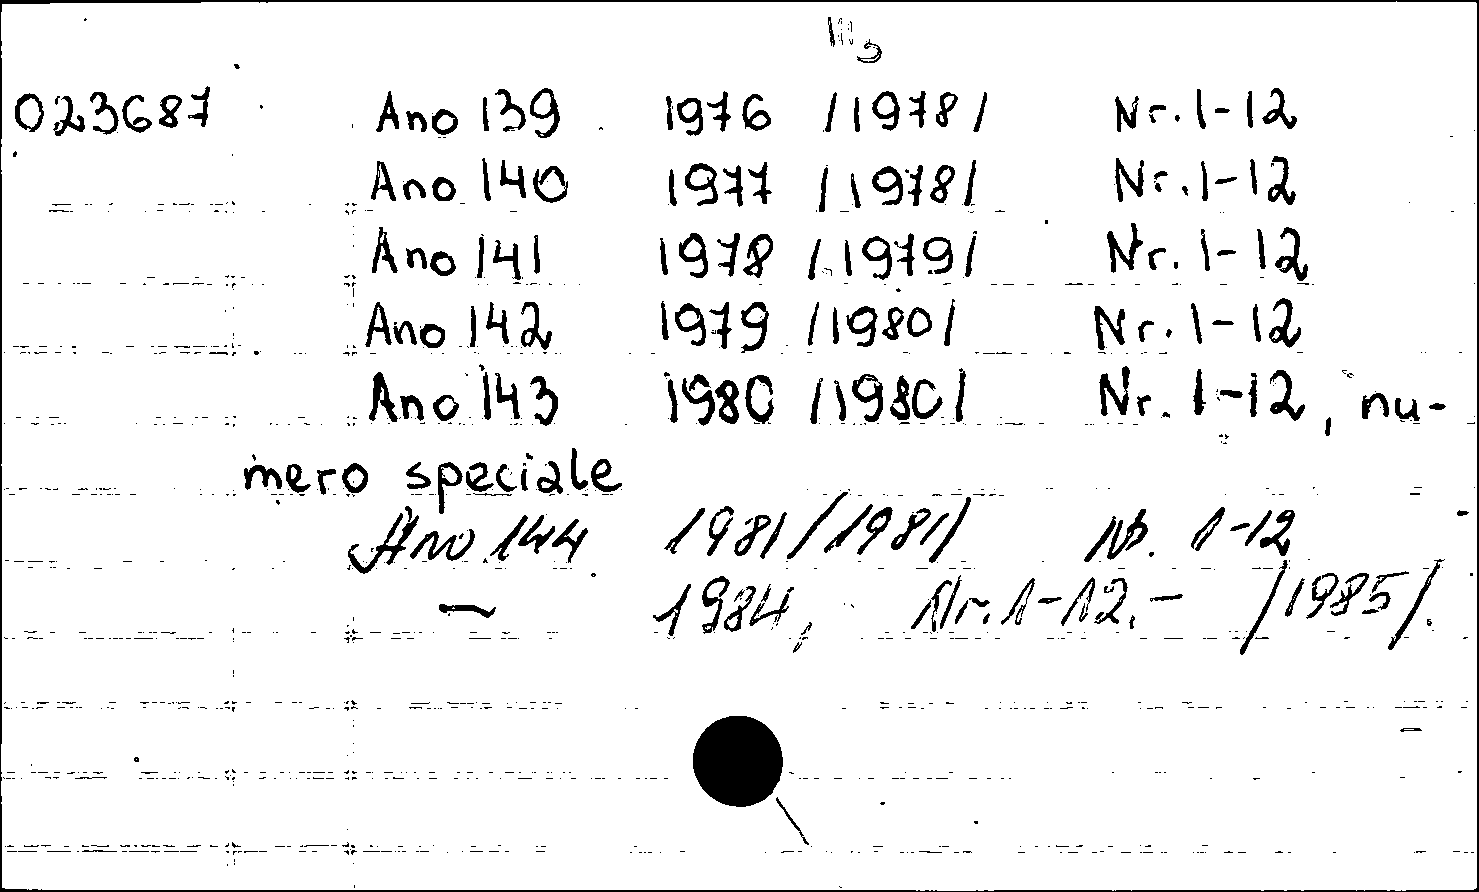 III 5
023687 Ano 139 1976 /1978/ Nr. 1-12
Ano 140 1977 /1978/ Nr. 1-12
Ano 141 1978 /1979/ Nr. 1-12
Ano 142 1979 /1980/ Nr. 1-12
Ano 143 1980 /1980/ Nr. 1-12, nu-
mero speciale
Ano 144 1981/1981/ Nr. 1-12
— 1984, Nr. 1-12.- /1985/.